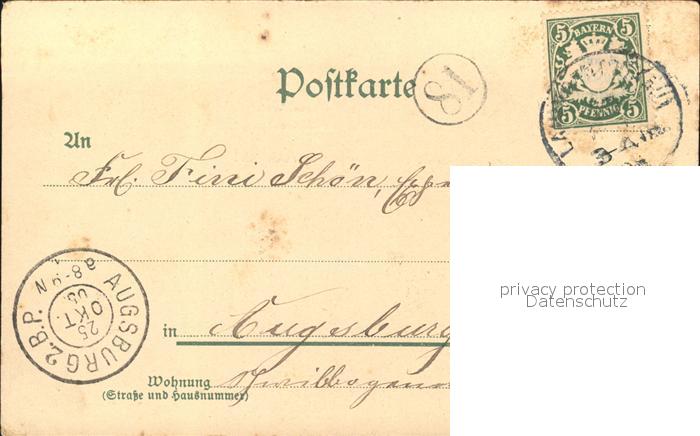 5 BAYERN 5
5 PFENNIG 5
Postkarte
18
An
Frl. Fini Schön,
privacy protection
Datenschutz
AUGSBURG 2.B.P.
25
OKT.
a 8-9 N
in Augsburg
Wohnung
(Straße und Hausnummer)